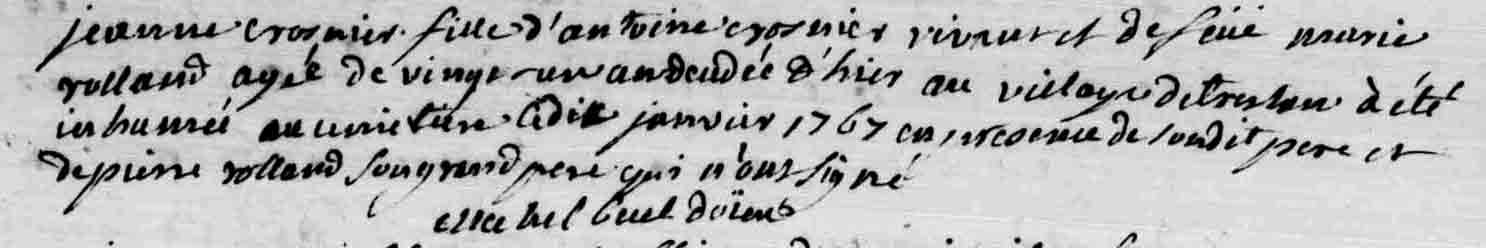 jeanne crosnier fille d'antoine crosnier vivant et de feüe marie
rolland agée de vingt un an decedée d'hier au village de à été
inhumée au cimetiere le dix janvier 1767 en presence de sondit pere et
de pierre rolland son grand pere qui n'ont signé
doïen